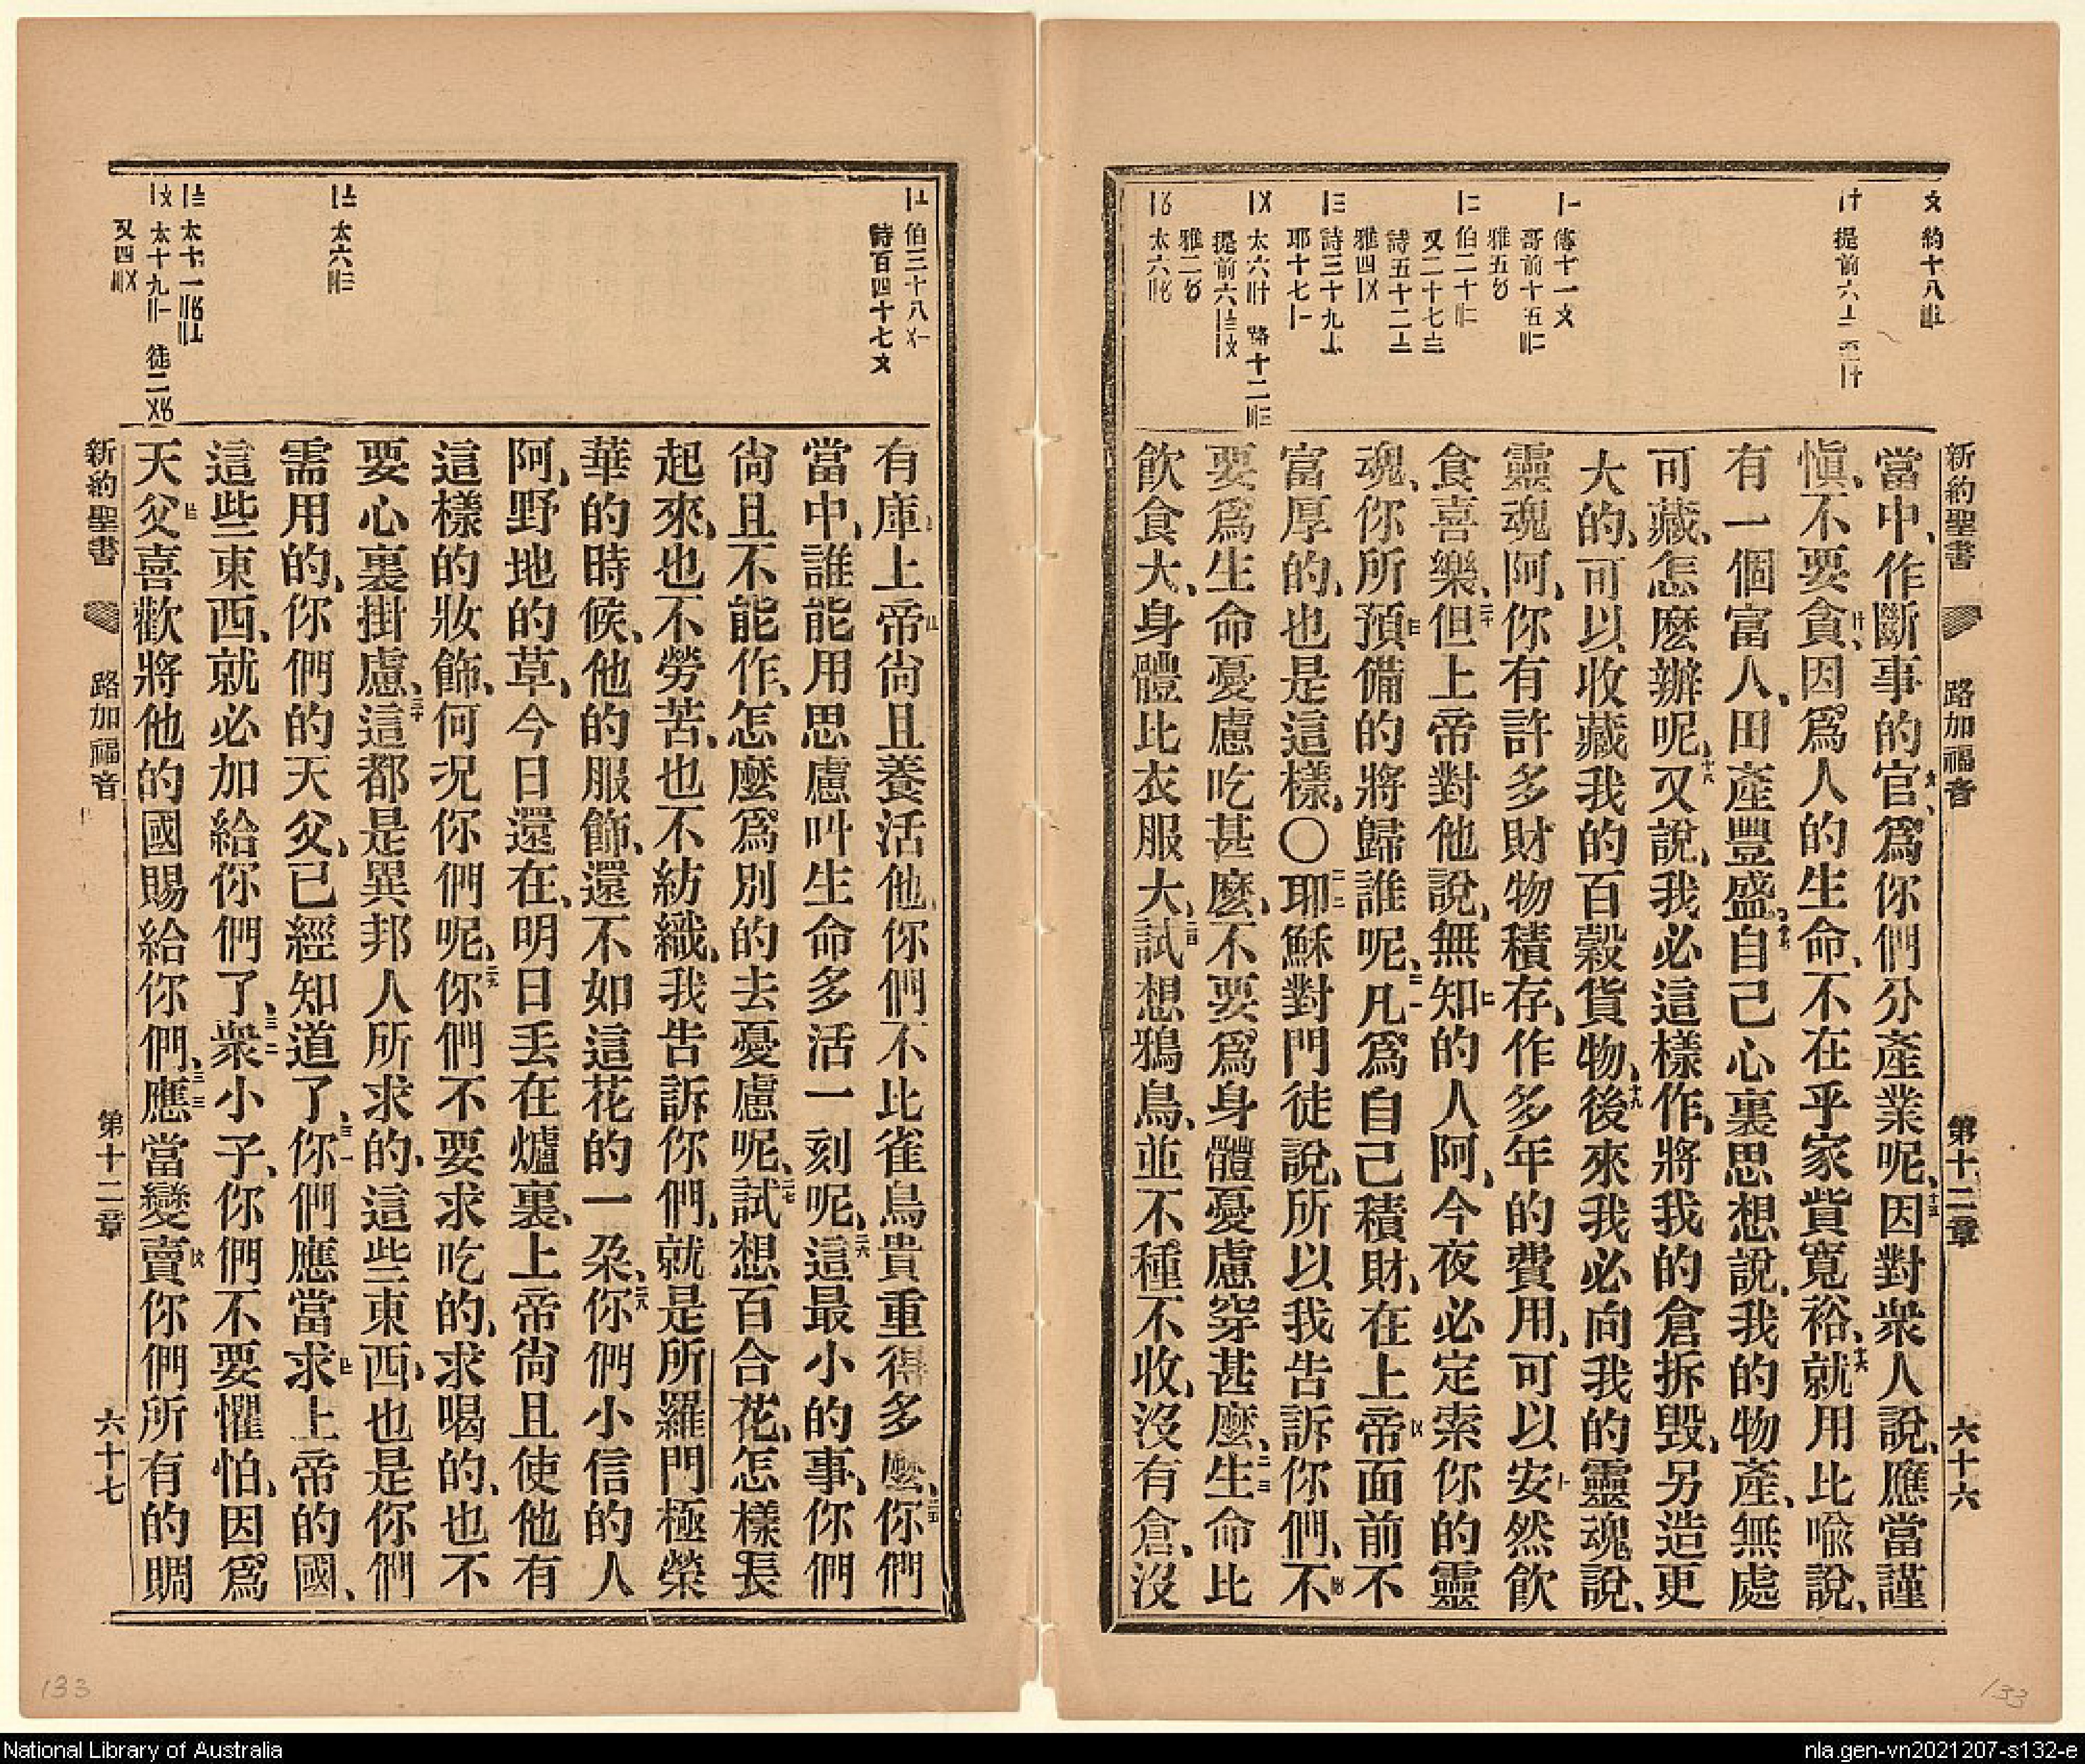 新約聖書 路加福音 第十二章 六十六
約十八
提前六
傳十一
哥前十五
雅五
伯二十
又二十七
詩五十二
雅四
詩三十九
耶十七
太六 路十二
提前六
雅二
太六
當中、作斷事的官、爲你們分產業呢、十五因對衆人說、應當謹
愼、不要貪、因爲人的生命、不在乎家貲寬裕、十六就用比喻說、
有一個富人、田產豐盛、十七自己心裏思想說、我的物產、無處
可藏、怎麽辦呢、十八又說、我必這樣作、將我的倉拆毀、另造更
大的、可以收藏我的百穀貨物、十九後來我必向我的靈魂說、
靈魂阿、你有許多財物積存、作多年的費用、可以安然飲
食喜樂、二十但上帝對他說、無知的人阿、今夜必定索你的靈
魂、你所預備的將歸誰呢、二一凡爲自己積財、在上帝面前不
富厚的、也是這樣、〇二二耶穌對門徒說、所以我告訴你們、不
要爲生命憂慮吃甚麽、不要爲身體憂慮穿甚麽、二三生命比
飲食大、身體比衣服大、二四試想鴉鳥、並不種不收、沒有倉、沒
伯三十八
詩百四十七
太六
太十一
太十九 徒二
又四
有庫、上帝尙且養活他、你們不比雀鳥貴重得多麽、二五你們
當中、誰能用思慮叫生命多活一刻呢、二六這最小的事、你們
尙且不能作、怎麽爲別的去憂慮呢、二七試想百合花、怎樣長
起來、也不勞苦、也不紡織、我告訴你們、就是所羅門極榮
華的時候、他的服飾、還不如這花的一朶、二八你們小信的人
阿、野地的草、今日還在、明日丢在爐裏、上帝尙且使他有
這樣的妝飾、何况你們呢、二九你們不要求吃的、求喝的、也不
要心裏掛慮、三十這都是異邦人所求的、這些東西、也是你們
需用的、你們的天父、已經知道了、三一你們應當求上帝的國、
這些東西、就必加給你們了、三二衆小子、你們不要懼怕、因爲
天父喜歡將他的國賜給你們、三三應當變賣你們所有的賙
新約聖書 路加福音 第十二章 六十七
133
133
National Library of Australia
nla.gen-vn2021207-s132-e